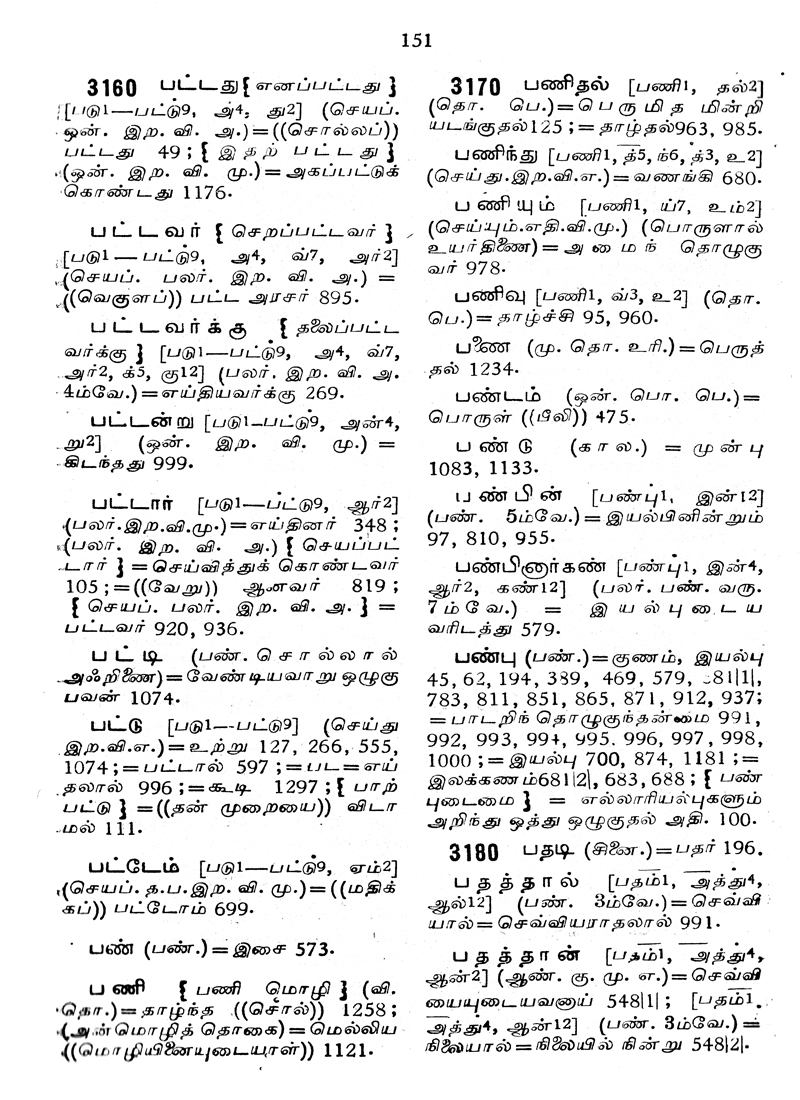 151
3160 பட்டது{ எனப்பட்டது }
[படு1—பட்டு9, அ4, து2] (செயப்.
ஒன். இற. வி. அ.)=((சொல்லப்))
பட்டது 49 ; { இதற் பட்டது }
(ஒன். இற. வி. மு.)=அகப்பட்டுக்
கொண்டது 1176.
பட்டவர் { செறப்பட்டவர் }
[படு1—பட்டு9, அ4, வ்7, அர்2]
(செயப். பலர். இற. வி. அ.) =
((வெகுளப்)) பட்ட அரசர் 895.
பட்டவர்க்கு { தலைப்பட்ட
வர்க்கு } [படு1—பட்டு9, அ4, வ்7,
அர்2, க்5, கு12] (பலர். இற. வி. அ.
4ம்வே.)=எய்தியவர்க்கு 269.
பட்டன்று [படு1—பட்டு9, அன்4,
று2] (ஒன். இற. வி. மு.) =
கிடந்தது 999.
பட்டார் [படு1—பட்டு9, ஆர்2]
(பலர்.இற.வி.மு.)=எய்தினர் 348 ;
(பலர். இற. வி. அ.) { செயப்பட்
டார் } =செய்வித்துக் கொண்டவர்
105 ; =((வேறு)) ஆனவர் 819 ;
{ செயப். பலர். இற. வி. அ. } =
பட்டவர் 920, 936.
பட்டி (பண். சொல்லால்
அஃறிணை)=வேண்டியவாறு ஒழுகு
பவன் 1074.
பட்டு [படு1—பட்டு9] (செய்து
இற.வி.எ.)=உற்று 127, 266, 555,
1074 ;=பட்டால் 597 ;=பட=எய்
தலால் 996 ;=கூடி 1297 ; { பாற்
பட்டு } =((தன் முறையை)) விடா
மல் 111.
பட்டேம் [படு1—பட்டு9, ஏம்2]
(செயப். த.ப.இற. வி. மு.)=((மதிக்
கப்)) பட்டோம் 699.
பண் (பண்.)=இசை 573.
பணி { பணி மொழி } (வி.
தொ.)=தாழ்ந்த ((சொல்)) 1258 ;
(அன்மொழித் தொகை)=மெல்லிய
((மொழியினையுடையாள்)) 1121.
3170 பணிதல் [பணி1, தல்2]
(தொ. பெ.)=பெருமித மின்றி
யடங்குதல்125 ;=தாழ்தல்963, 985.
பணிந்து [பணி1, த்5, ந்6, த்3, உ2]
(செய்து.இற.வி.எ.)=வணங்கி 680.
பணியும் [பணி1, ய்7, உம்2]
(செய்யும்.எதி.வி.மு.) (பொருளால்
உயர்திணை)=அமைந் தொழுகு
வர் 978.
பணிவு [பணி1, வ்3, உ2] (தொ.
பெ.)=தாழ்ச்சி 95, 960.
பணை (மு. தொ. உரி.)=பெருத்
தல் 1234.
பண்டம் (ஒன். பொ. பெ.)=
பொருள் ((பீலி)) 475.
பண்டு (கால.) = முன்பு
1083, 1133.
பண்பின் [பண்பு1, இன்12]
(பண். 5ம்வே.)=இயல்பினின்றும்
97, 810, 955.
பண்பினார்கண் [பண்பு1, இன்4,
ஆர்2, கண்12] (பலர். பண். வரு.
7ம் வே.) = இயல்புடைய
வரிடத்து 579.
பண்பு (பண்.)=குணம், இயல்பு
45, 62, 194, 389, 469, 579, 81|1|,
783, 811, 851, 865, 871, 912, 937;
=பாடறிந் தொழுகுந்தன்மை 991,
992, 993, 994, 995. 996, 997, 998,
1000 ;=இயல்பு 700, 874, 1181 ;=
இலக்கணம்681|2|, 683, 688 ; { பண்
புடைமை } = எல்லாரியல்புகளும்
அறிந்து ஒத்து ஒழுகுதல் அதி. 100.
3180 பதடி (சினை.)=பதர் 196.
பதத்தால் [பதம்1, அத்து4,
ஆல்12] (பண். 3ம்வே.)=செவ்வி
யால்=செவ்வியராதலால் 991.
பதத்தான் [பதம்1, அத்து4,
ஆன்2] (ஆண். கு. மு. எ.)=செவ்வி
யையுடையவனாய் 548|1| ; [பதம்1,
அத்து4, ஆன்12] (பண். 3ம்வே.)=
நிலையால்=நிலையில் நின்று 548|2|.